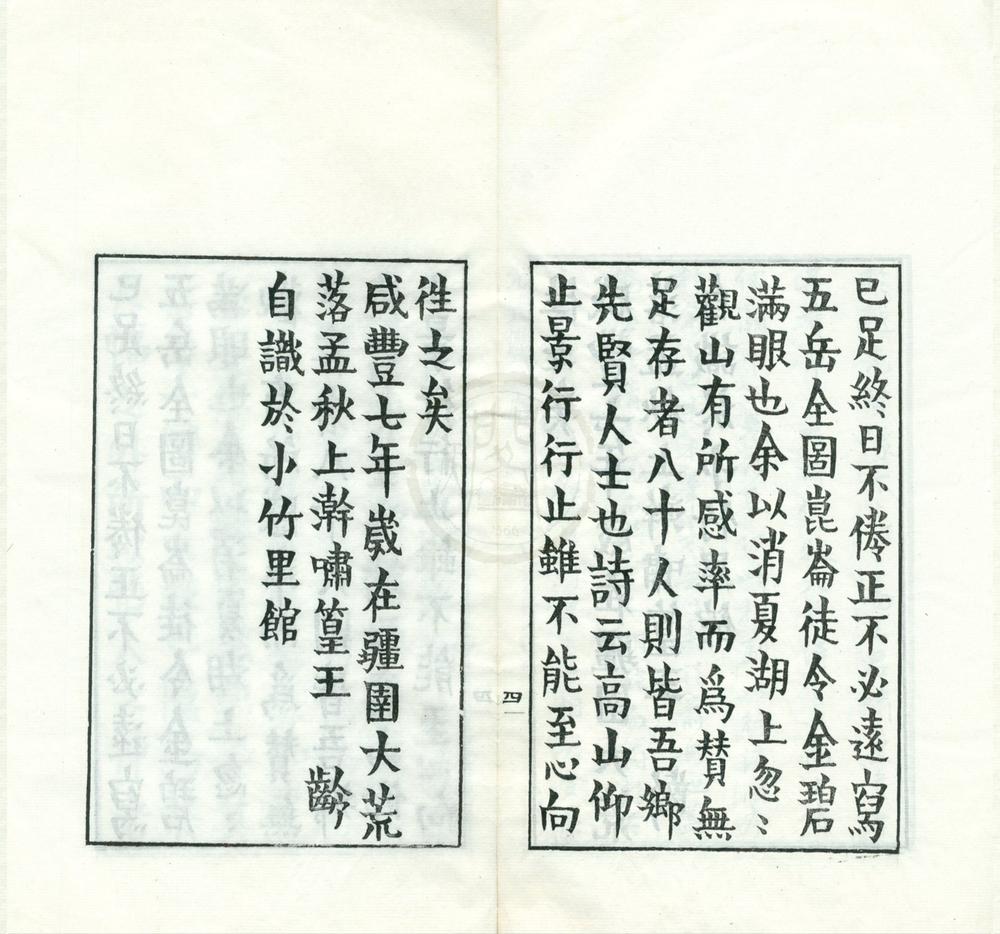 已足終日不倦正不必遠寫
五岳全圖崑崙徒令金碧
滿眼也余以消夏湖上忽〻
觀山有所感率而爲贊無
足存者八十人則皆吾鄉
先賢人士也詩云高山仰
止景行行止雖不能至心向
徃之矣
咸豐七年歲在疆圉大荒
落孟秋上澣嘯篁王　齡
自識於小竹里館
四